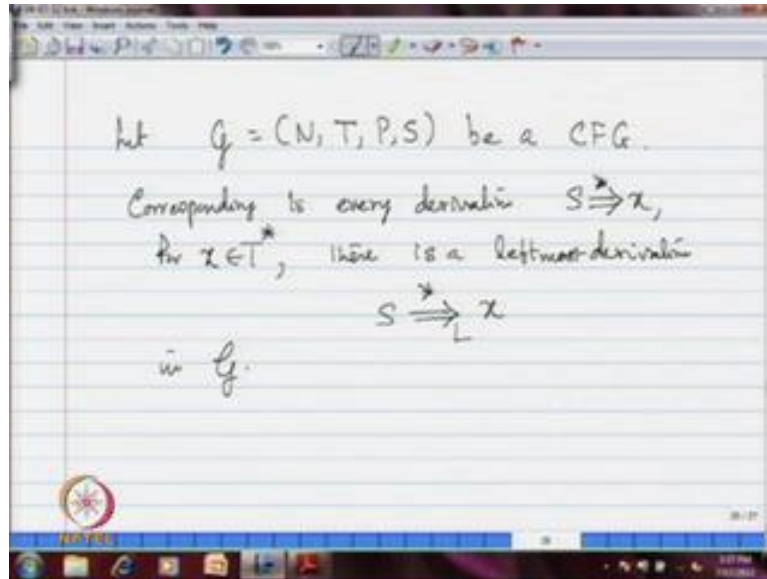 Let G = (N, T, P, S) be a CFG.
Corresponding to every derivation S ⇒* x,
for x ∈ T*, there is a leftmost derivation
S ⇒*_L x
in G.
NPTEL